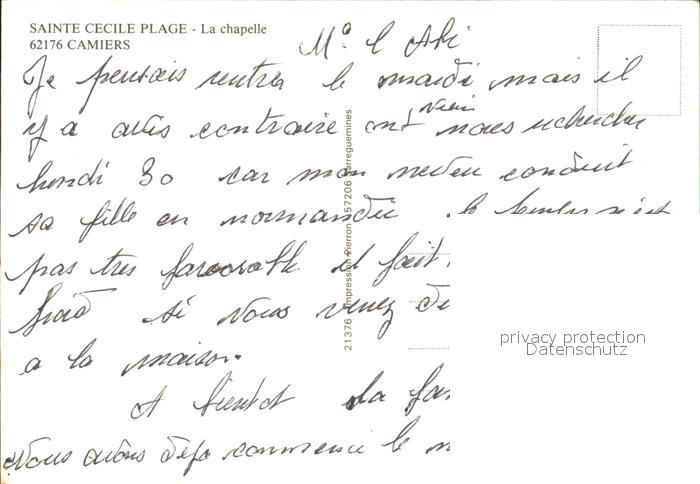 SAINTE CECILE PLAGE - La chapelle
62176 CAMIERS
Je pensais rentrer le mardi mais il
y a avis contraire ont venir nous rechercher
lundi 30 car mon neveu conduit
sa fille en normandie . le temps n'est
pas tres favorable il fait
froid si vous venez
a la maison.
A bientot la
Nous avons deja commencé le
21376 Impression Pierron 57206 Sarreguemines
privacy protection
Datenschutz